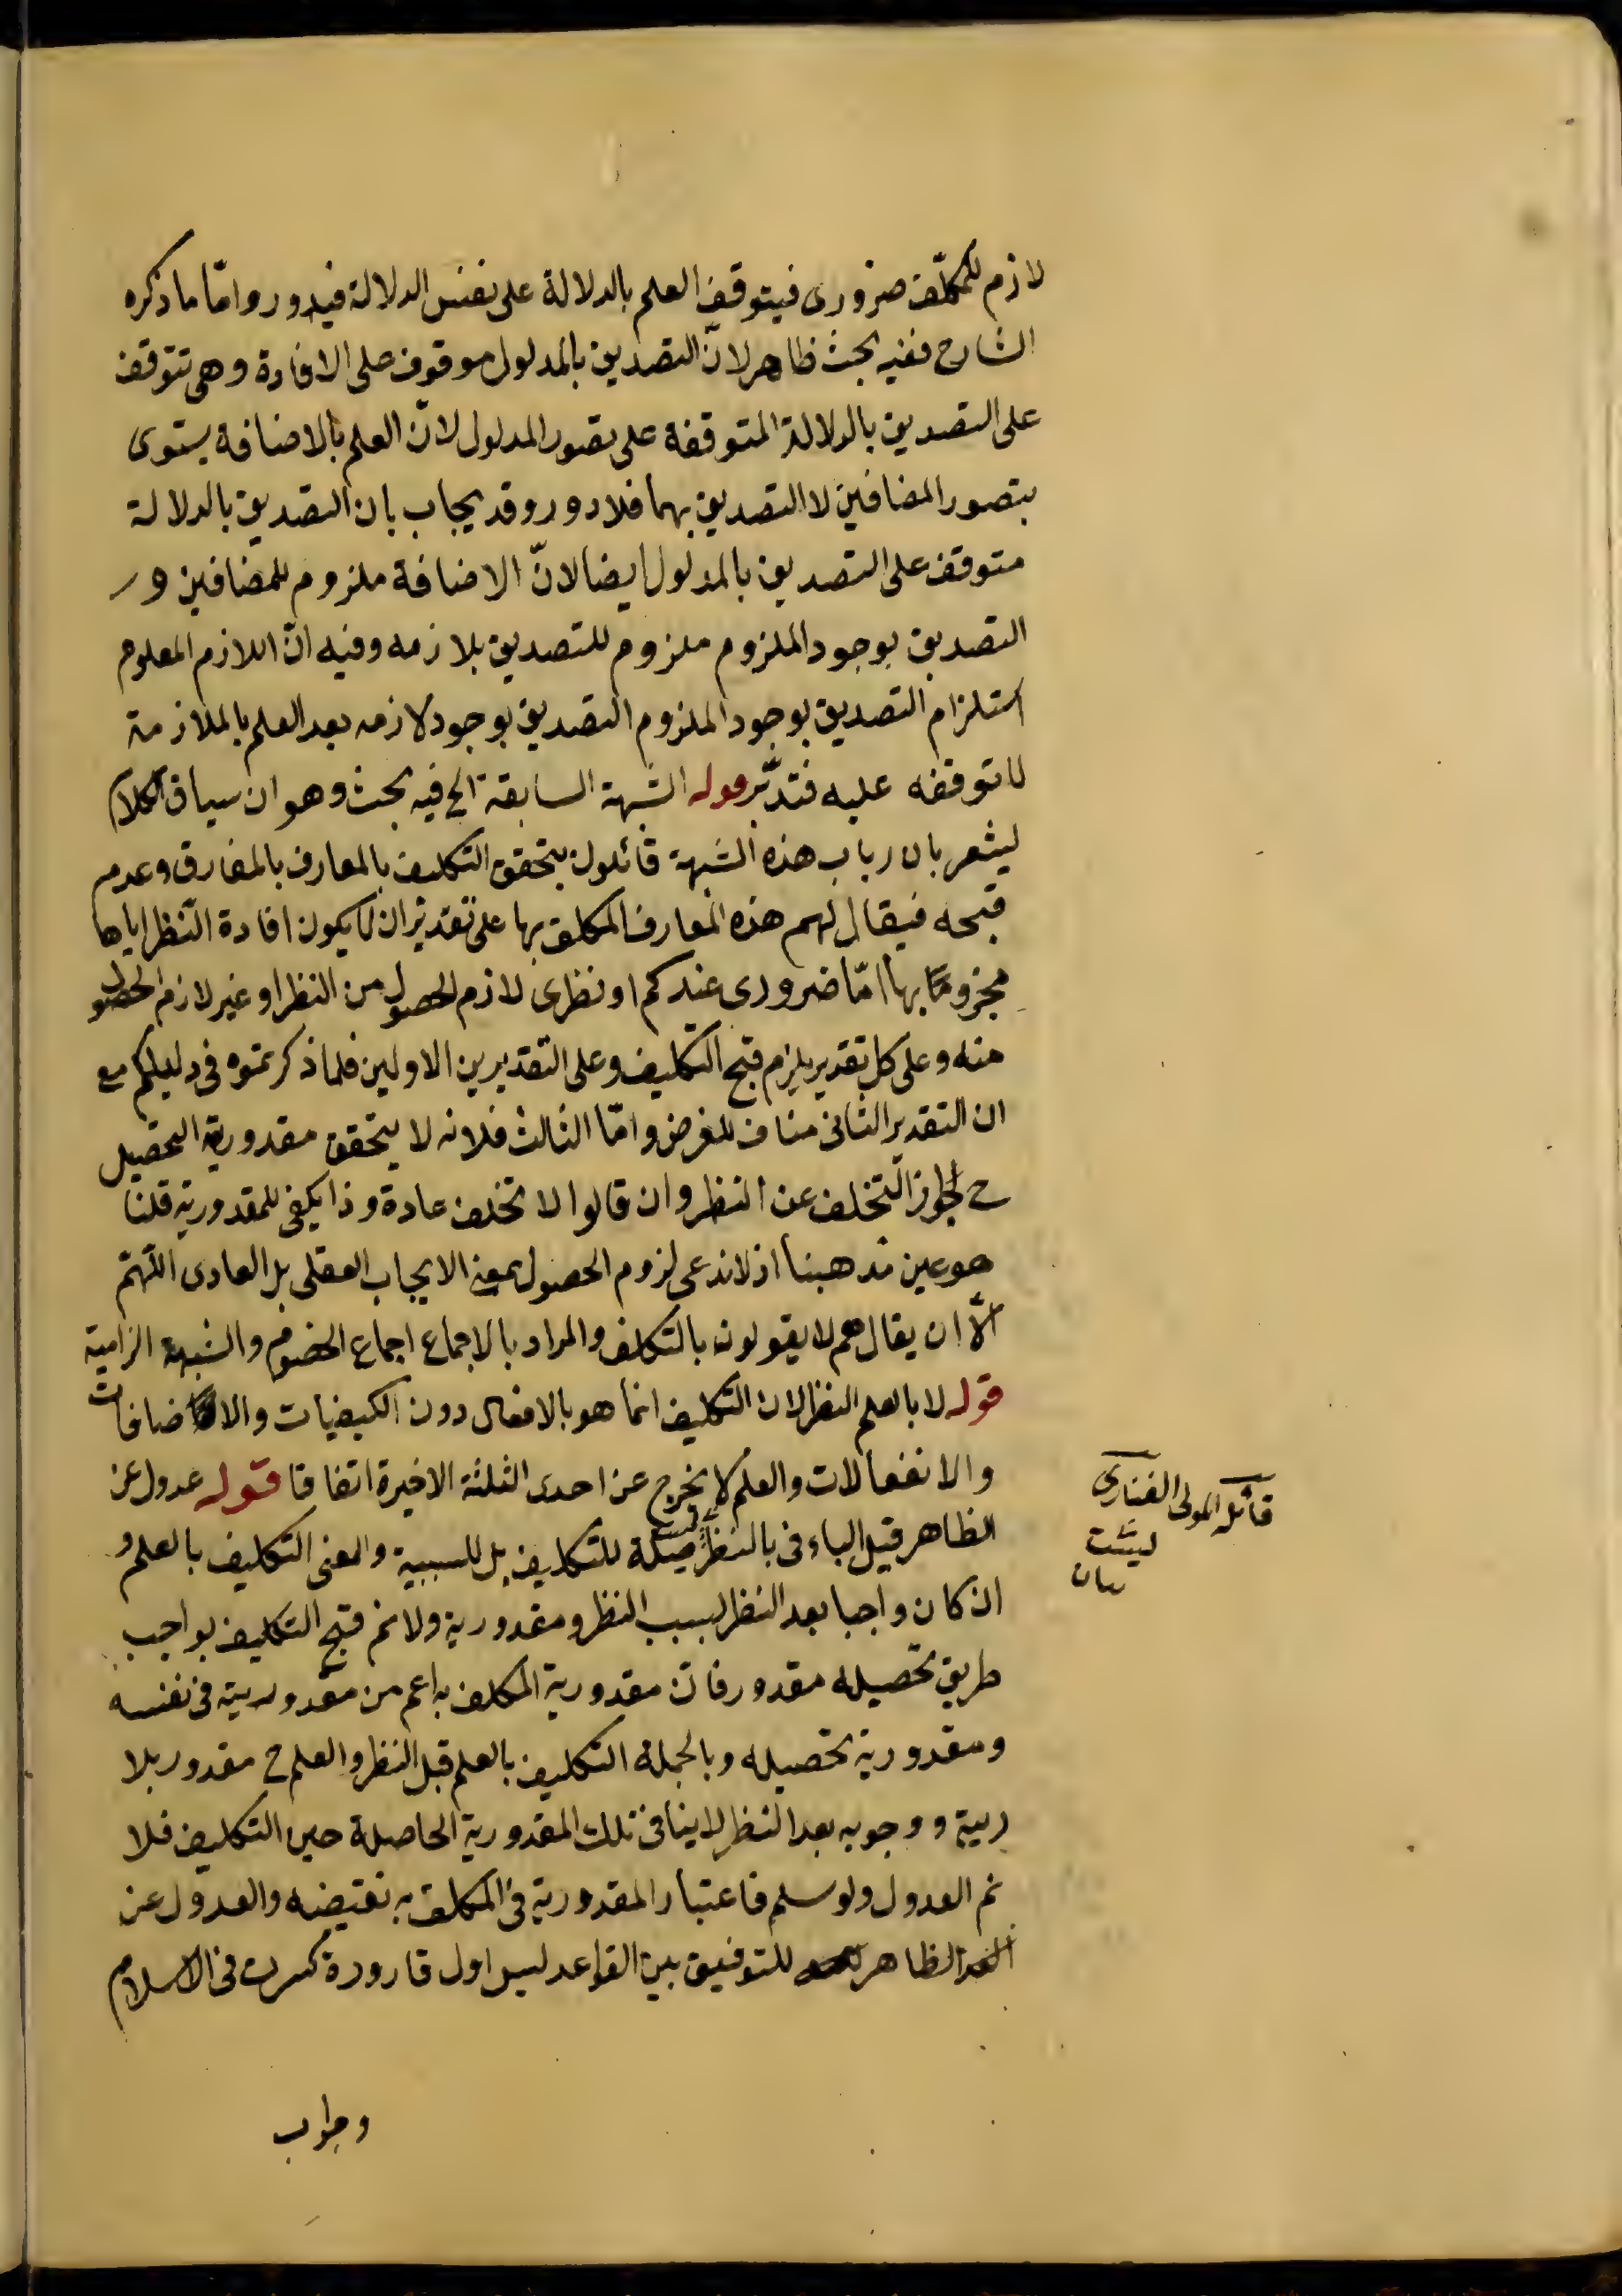 لازم للمكلّف ضرورى فيتوقف العلم بالدلالة على نفس الدلالة فيدور وامّا ما ذكره
الشارح ففيه بحث ظاهر لانّ التصديق بالمدلول موقوف على الافادة وهى تتوقف
على التصديق بالدلالة المتوقفة على تصور المدلول لانّ العلم بالاضافة يستوى
بتصور المضافين لا التصديق بهما فلا دور وقد يجاب بان التصديق بالدلالة
متوقف على التصديق بالمدلول ايضا لانّ الاضافة ملزوم للمضافين و
التصديق بوجود الملزوم ملزوم للتصديق بلازمه وفيه انّ اللازم المعلوم
استلزام التصديق بوجود الملزوم التصديق بوجود لازمه بعد العلم بالملازمة
لا توقفه عليه فتدبّر قوله الشبهة السابقة الخ فيه بحث وهو ان سياق الكلام
ليشعر بان رباب هذه الشبهة قائلون بتحقق التكليف بالمعارف بالمفارق وعدم
قبحه فيقال لهم هذه المعارف المكلف بها على تقدير ان لا يكون افادة النظر اياها
مجزوما بها امّا ضرورى عندكم او نظرى لازم الحصول من النظر او غير لازم الحصول
منه وعلى كل تقدير يلزم قبح التكليف وعلى التقديرين الاولين فلما ذكرتموه فى دليلكم مع
ان التقدير الثانى مناف للغرض وامّا الثالث فلانه لا يتحقق مقدورية التحصيل
ح لجواز التخلف عن النظر وان قالوا لا تخلف عادة وذا يكفى للمقدورية قلنا
هو عين مذهبنا اذ لا ندعى لزوم الحصول بمعنى الايجاب العقلى بل العادى اللّهمّ
الّا ان يقال هم لا يقولون بالتكلف والمراد بالاجماع اجماع الخصوم والشبهة الزامية
قوله لا بالعلم النظر لان التكليف انما هو بالافعال دون الكيفيات والاضافات
والانفعالات والعلم لا يخرج عن احدى الثلثة الاخيرة اتفاقا قوله عدول عن
الظاهر قيل الباء فى بالنظر ليست صلة للتكليف بل للسببية والمعنى التكليف بالعلم و
ان كان واجبا بعد النظر لسبب النظر ومقدورية ولا نم قبح التكليف بواجب
طريق تحصيله مقدور فان مقدورية المكلف به اعم من مقدوريته فى نفسه
ومقدورية تحصيله وبالجملة التكليف بالعلم قبل النظر والعلم ح مقدور بلا
ريبة ووجوبه بعد النظر لا ينافى تلك المقدورية الحاصلة حين التكليف فلا
نم العدول ولو سلم فاعتبار المقدورية فى المكلف به تقتضيه والعدول عن
الظاهر للتوفيق بين القواعد ليس اول قارورة كسرت فى الاسلام
قائله المولى الفنارى
وجواب